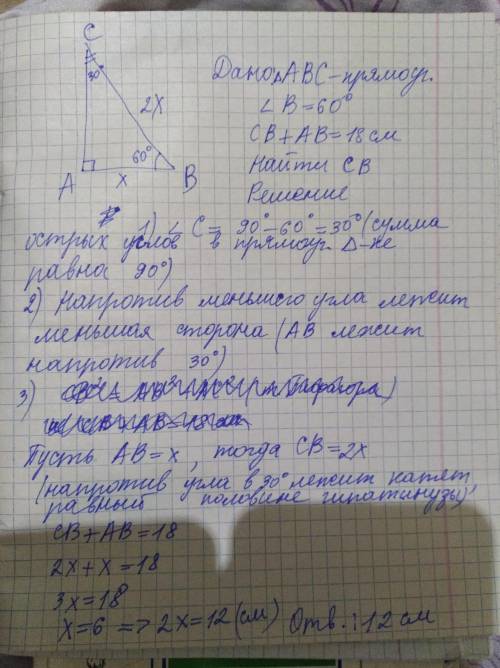 C
30°
2x
60°
A
x
B
Дано △ABC-прямоуг.
∠B=60°
CB+AB=18см
Найти CB
Решение
1) ∠C=90°-60°=30° (сумма
острых углов в прямоуг. Δ-ке
равна 90°)
2) Напротив меньшего угла лежит
меньшая сторона (AB лежит
напротив 30°)
3)
Пусть AB=x, тогда CB=2x
(напротив угла в 30° лежит катет
равный половине гипатинузы)
CB+AB=18
2x+x=18
3x=18
x=6 => 2x=12 (см) Отв.: 12 см